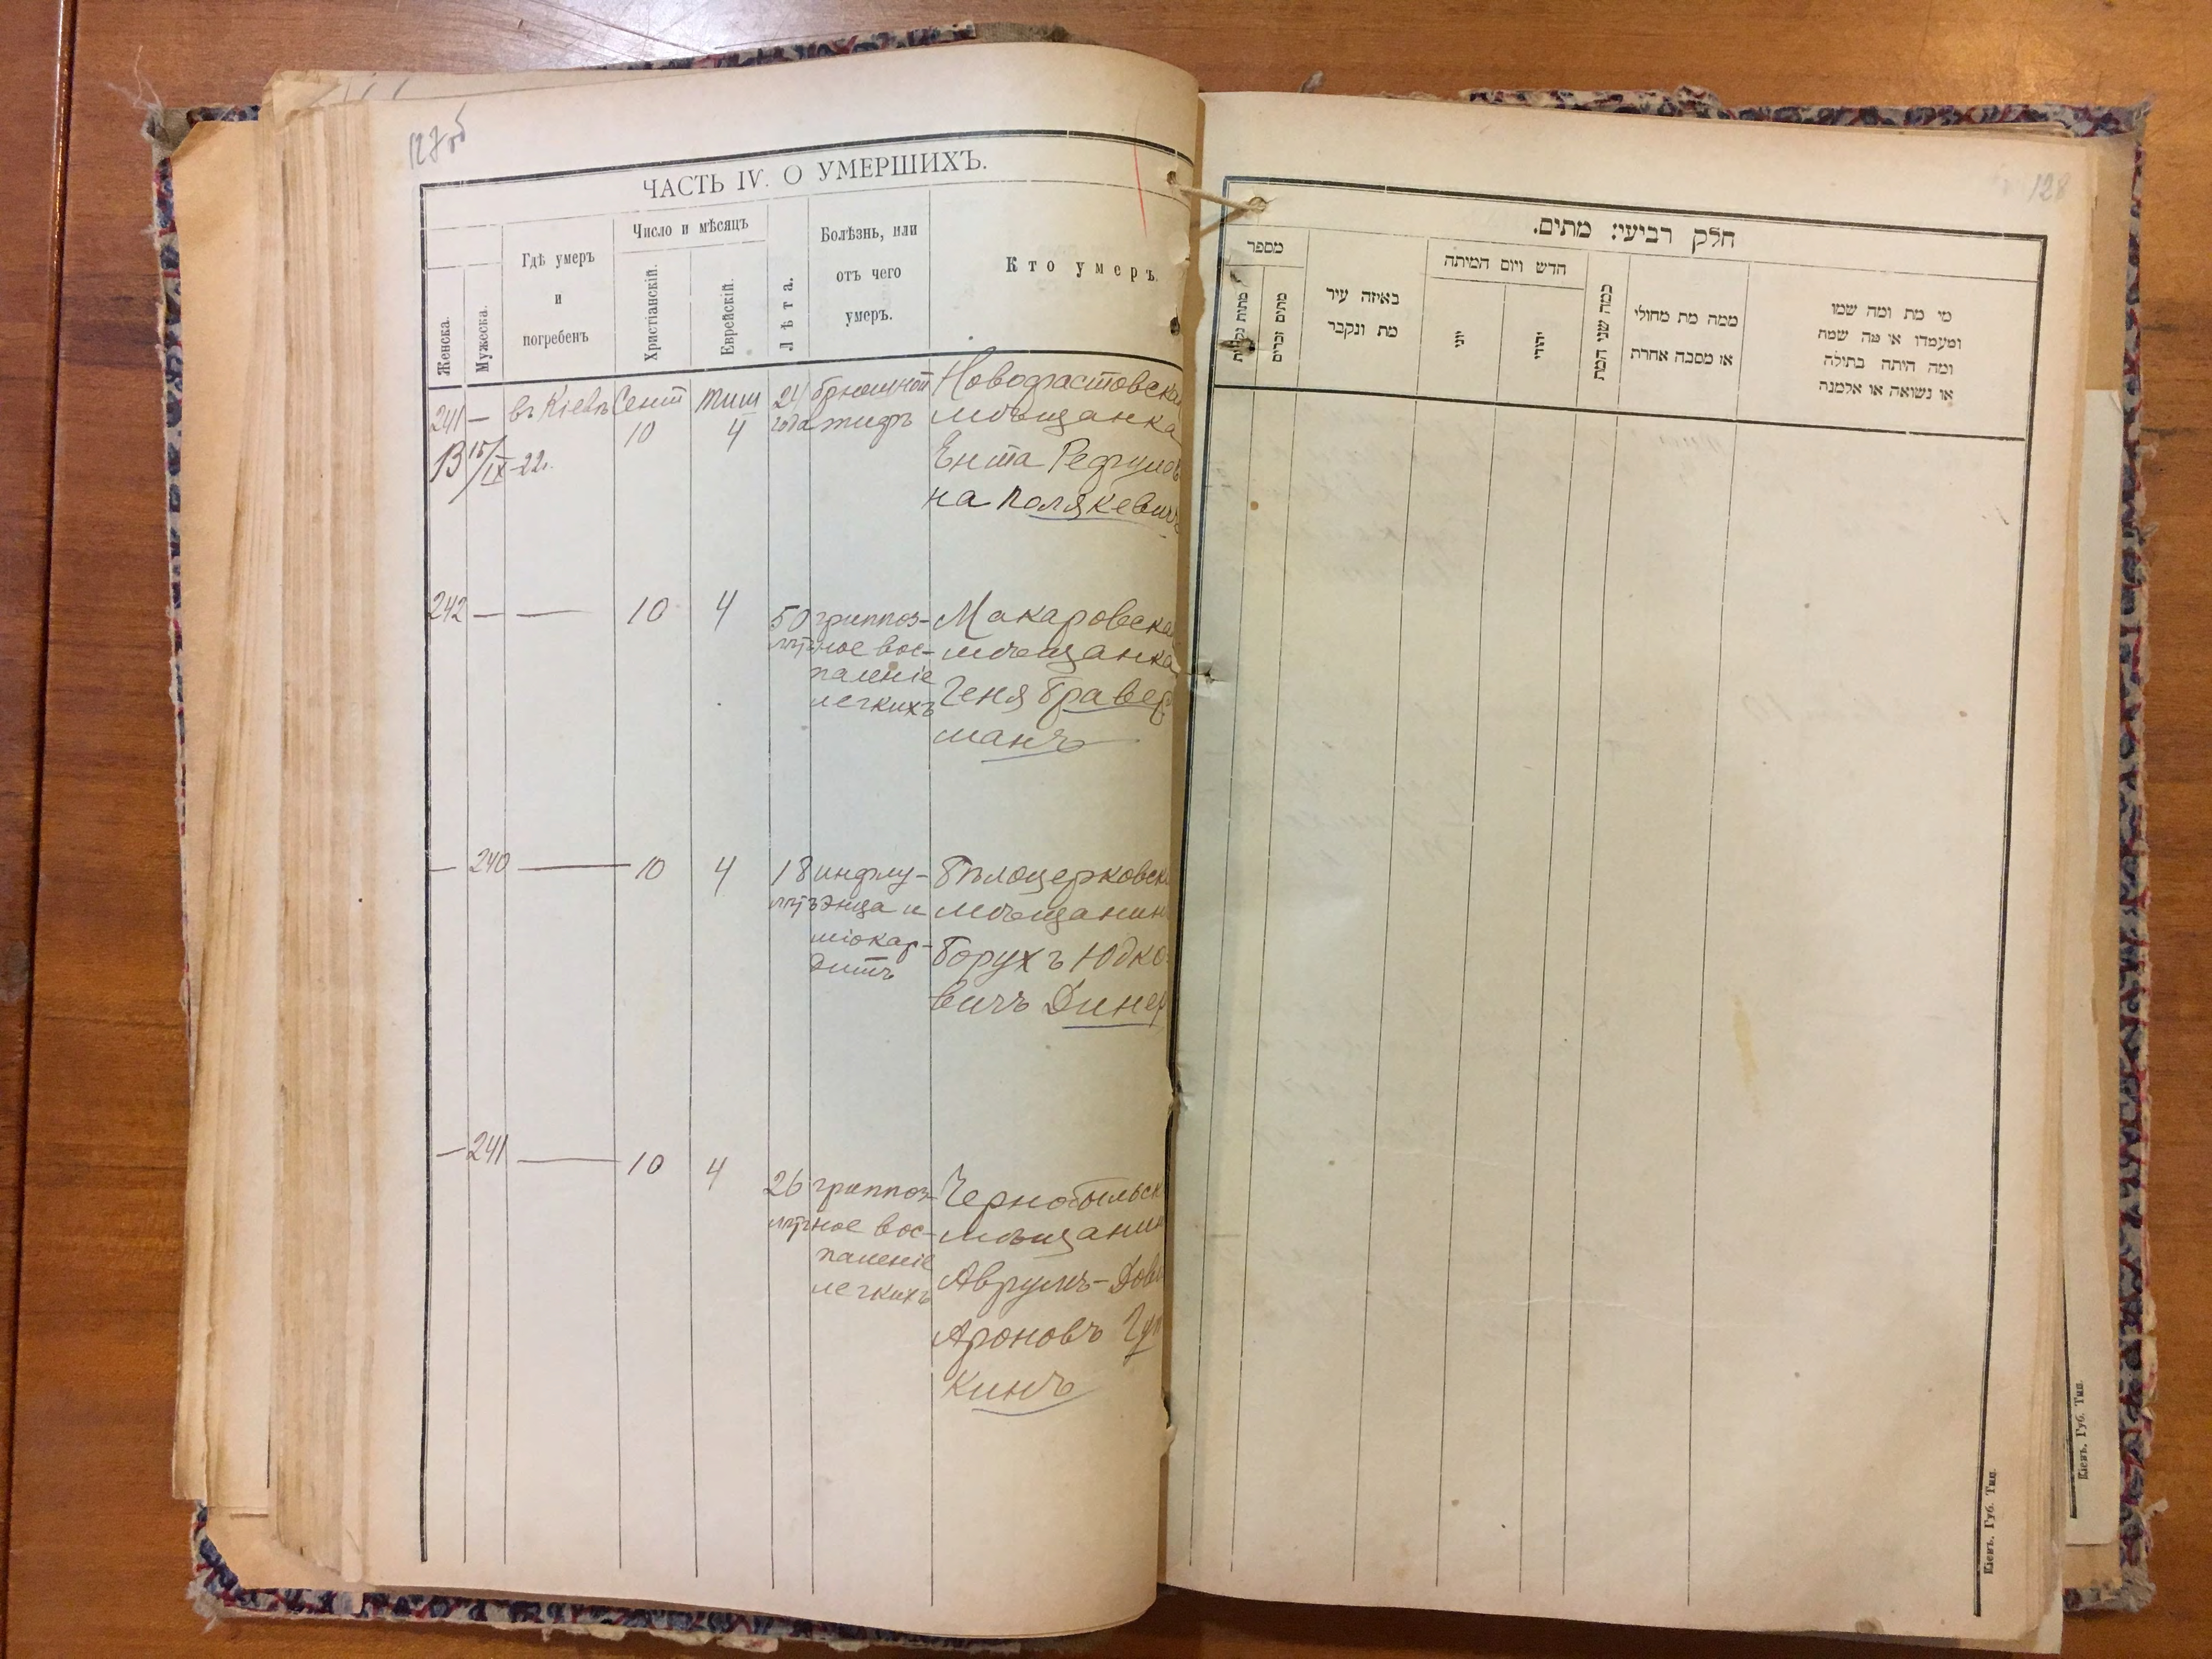 127об
ЧАСТЬ IV. О УМЕРШИХЪ.
Женска.
Мужеска.
Гдѣ умеръ
и
погребенъ
Число и мѣсяцъ
Христіанскій.
Еврейскій.
Лѣта.
Болѣзнь, или
отъ чего
умеръ.
Кто умеръ.
241 — въ Кіевѣ Сент 10 тиш 4 24 года брюшной тифъ
Новофастовска
мѣщанка
Ента
на Полякевич
В 15/IX-22г.
242 — — 10 4 50 лѣтъ гриппоз-
ное вос-
паленіе
легкихъ
Макаровска
мѣщанка
Геня Гравер
манъ
— 240 — 10 4 18 лѣтъ инфлу-
энца и
міокар-
дитъ
Бѣлоцерковск
мѣщанин
Борухъ Юдко
вичъ Динер
— 241 — 10 4 26 лѣтъ гриппоз-
ное вос-
паленіе
легкихъ
Чернобыльск
мѣщанин
Аврумъ-Дов
Ароновъ
кинъ
128
חלק רביעי: מתים.
מספר
מתות נקבות
מתים זכרים
באיזה עיר
מת ונקבר
חדש ויום המיתה
יוני
יהודי
כמה שני המת
ממה מת מחולי
או מסבה אחרת
מי מת ומה שמו
ומעמדו או מה שמה
ומה היתה בתולה
או נשואה או אלמנה
Кіевъ. Губ. Тип.
Кіевъ. Губ. Тип.